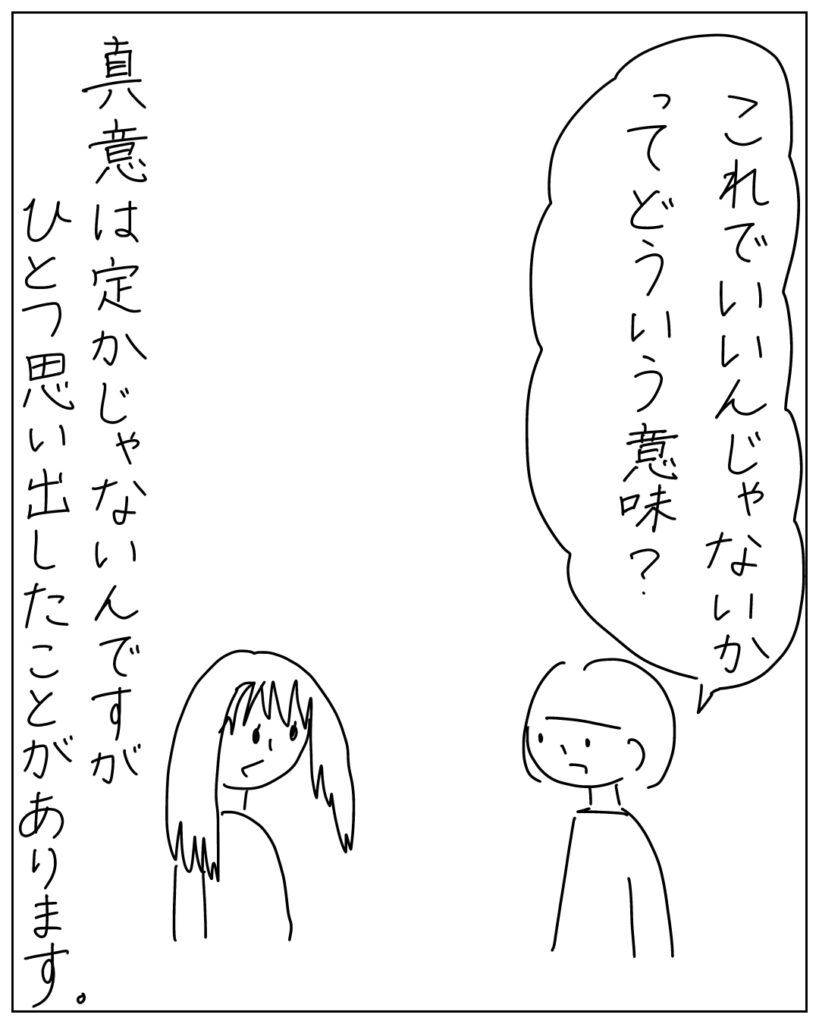 これでいいんじゃないか
ってどういう意味?
真意は定かじゃないんですが
ひとつ思い出したことがあります。